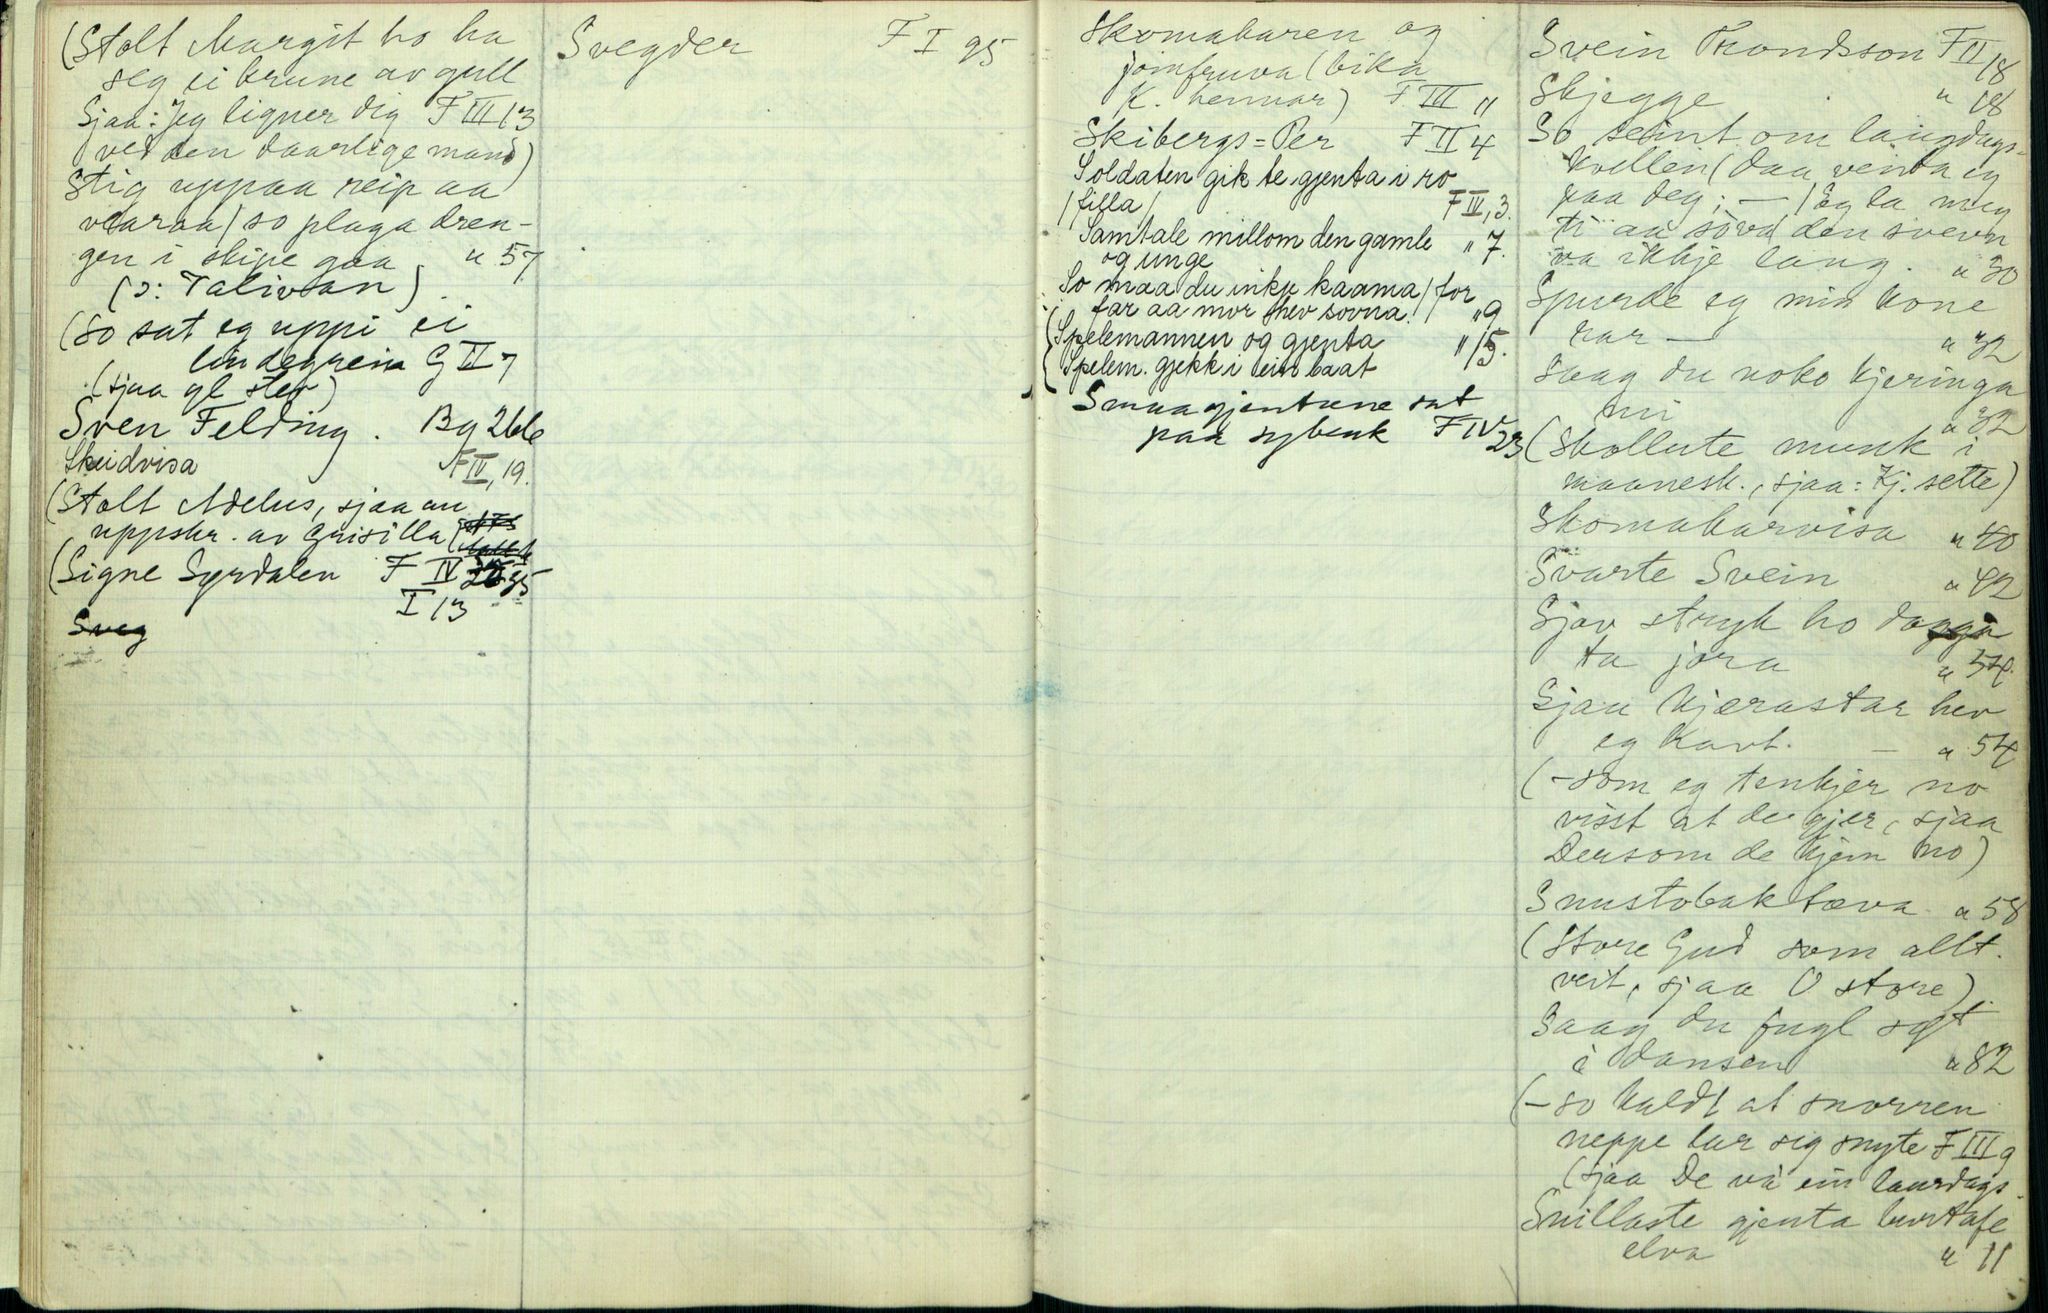 (Stolt Margit ho ha
seg ei krune av gull
Sjaa: Jeg ligner dig F III 13
ved den daarlige mand)
Stig uppaa reip aa
vaaraa / so plaga dren-
gen i skipe gaa " 57
(ɔ: Talivan)
(so sat eg uppi ei
lindegrein G II 7
(sjaa gl stev)
Sven Felding. Bg 2
Skeidvisa F IV, 19.
(Stolt Adelus, sjaa an
uppskr. av Grisilla
(Signe Syrdalen F IV
I 13
Sveg
Svegder F I 95
Skomakaren og
jomfruva (bika
K. hennar) F III "
Skibergs=Per F II 4
Soldaten gik te gjenta i ro
/filla/ F IV, 3.
Samtale millom den gamle " 7.
og unge
So maa du inkje kaama / for
far aa mor hev sovna. / " 9
(Spelemannen og gjenta " 15.
(Spelem. gjekk i ein baat
Smaagjentune sat
paa sybenk F IV 23
Svein Trondsson F II 18
Skjegge " 18
So seint om laugdags-
kvellen (daa venta eg
paa deg; — / Eg la meg
ti aa sova / den svevn
va ikkje lang. " 30
Spurde eg min kone
rar — " 32
Saag du noko kjeringa
mi " 32
(Skollute munk i
maanesk., sjaa: Kj. sette)
Skomakarvisa " 40
Svarte Svein " 42
Sjav stryk ho dogga
ta jora " 54.
Sjau kjærastar hev
eg havt. — " 54
(– som eg tenkjer no
visst at de gjer, sjaa
Dersom de kjem no)
Snustobak tæva " 58
(Store Gud som allt.
veit, sjaa O store)
Saag du fugl
i dansen " 82
(– so kaldt at snorren
neppe lar sig snyte F III 9
(sjaa De va ein laurdags-
Snillaste gjenta burtafe
elva " 11